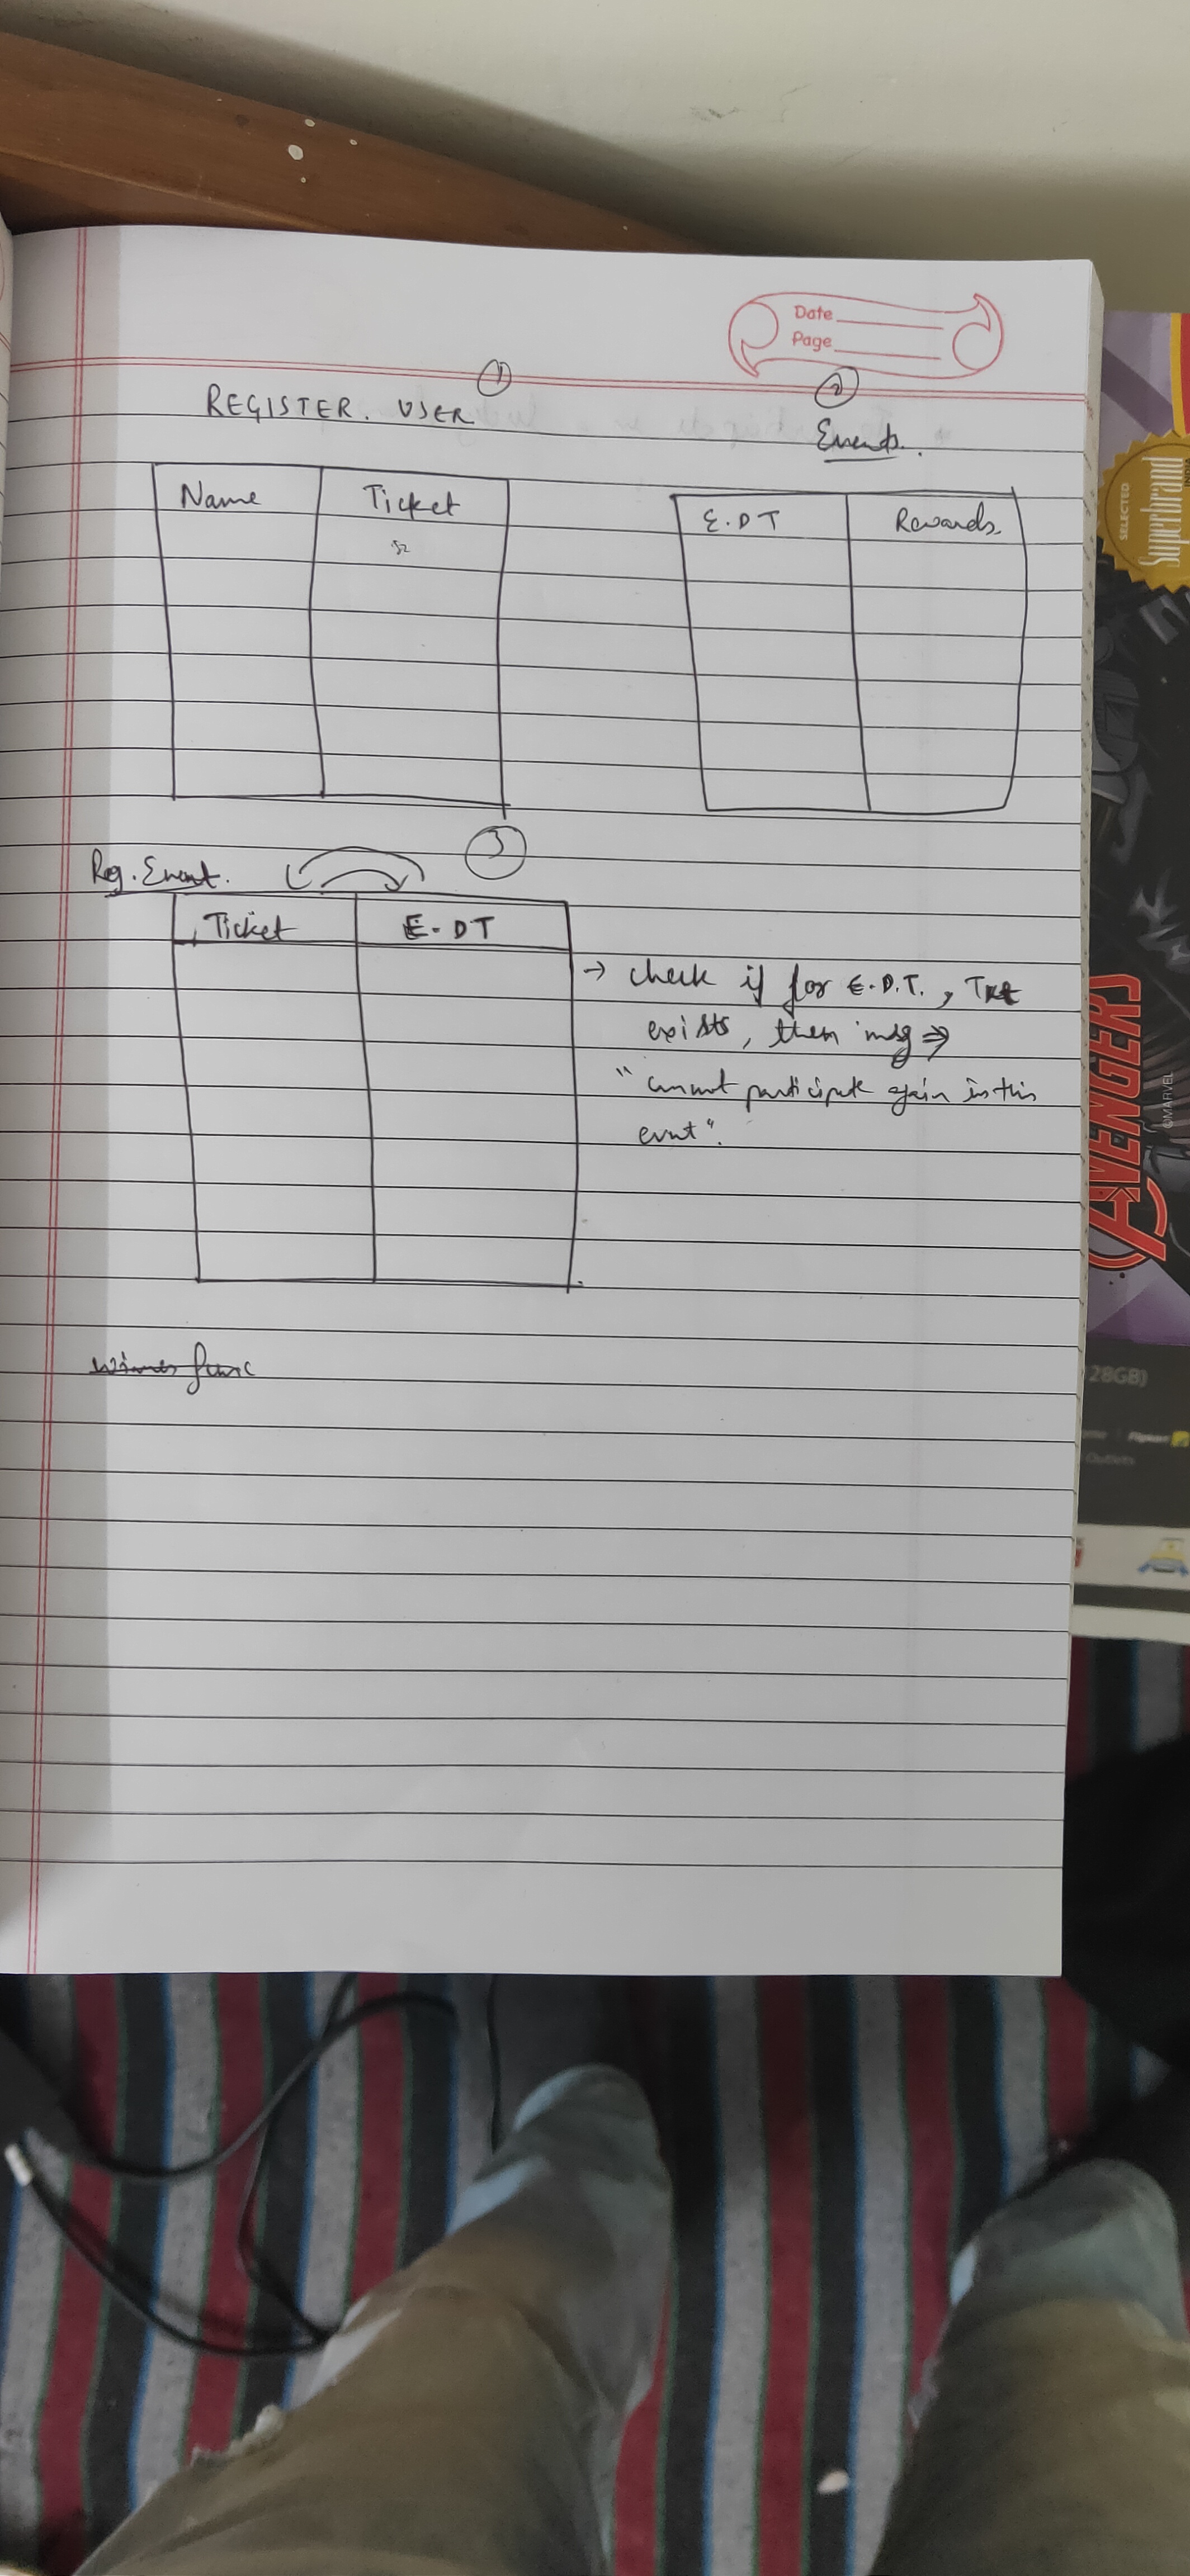 Date
Page
①
REGISTER. USER
②
Events.
Name Ticket
E.DT Rewards.
3
Reg. Event.
Ticket E-DT
→ check if for E.D.T., Tkt
exists, then msg ⇒
"cannot participate again in this
event".
func
SELECTED
Superbrand
INDIA
AVENGERS
©MARVEL
28GB)
Flipkart
Outlets